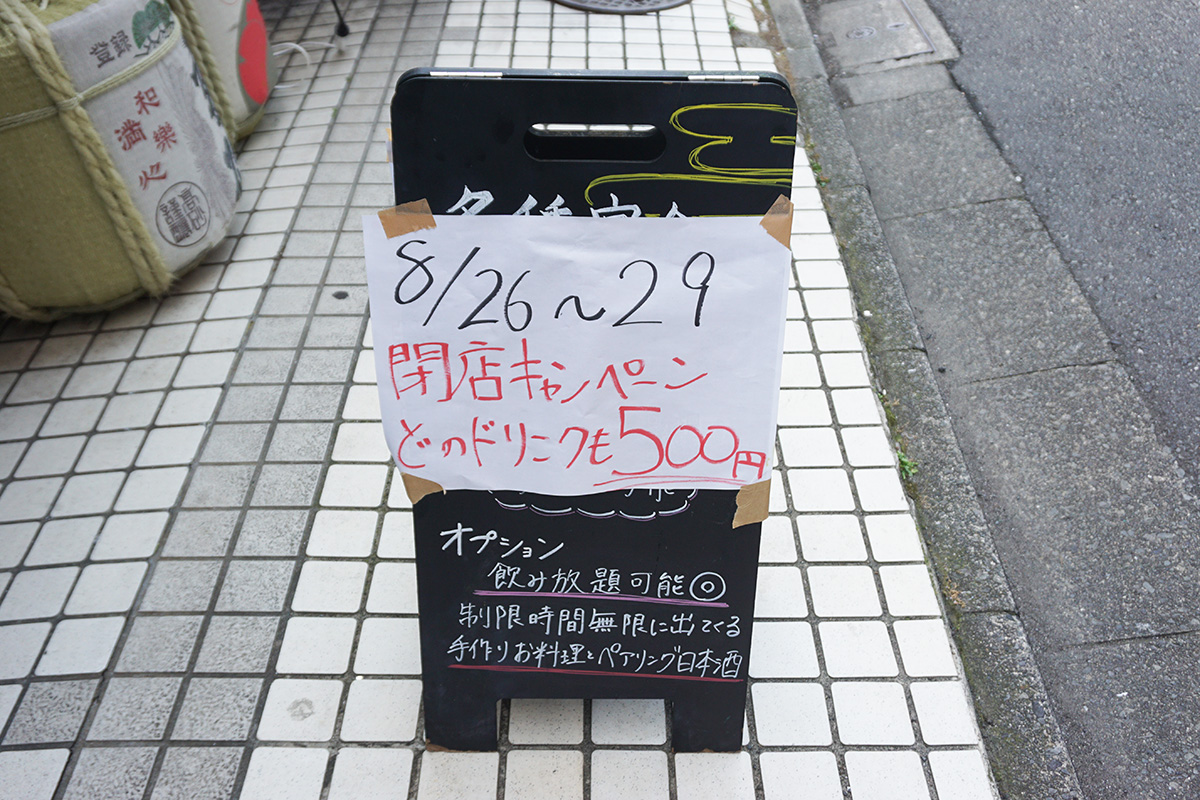 登録
和樂
満心
8/26～29
閉店キャンペーン
どのドリンクも500円
オプション
飲み放題可能◎
制限時間無限に出てくる
手作りお料理とペアリング日本酒